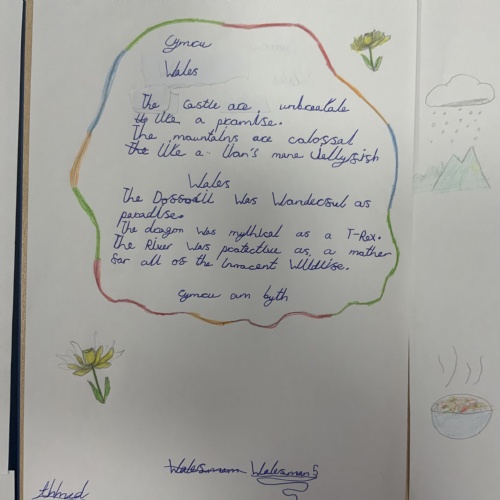 Cymru
Wales
The castle are unbreatable
like a promise.
The mountains are colossal
like a lion's mane Jellyfish
Wales
The Daffodil was wanderful as
paradise.
The dragon was mythical as a T-Rex.
The River was protective as a mother
for all of the innocent wildlife.
Cymru am byth
Walesmam Walesmans